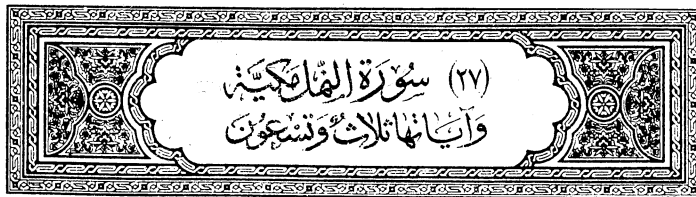 (٢٧) سُورَة النَّمْل مَكيَّة
وَآيَاتهَا ثلاثٌ وَتسْعُون